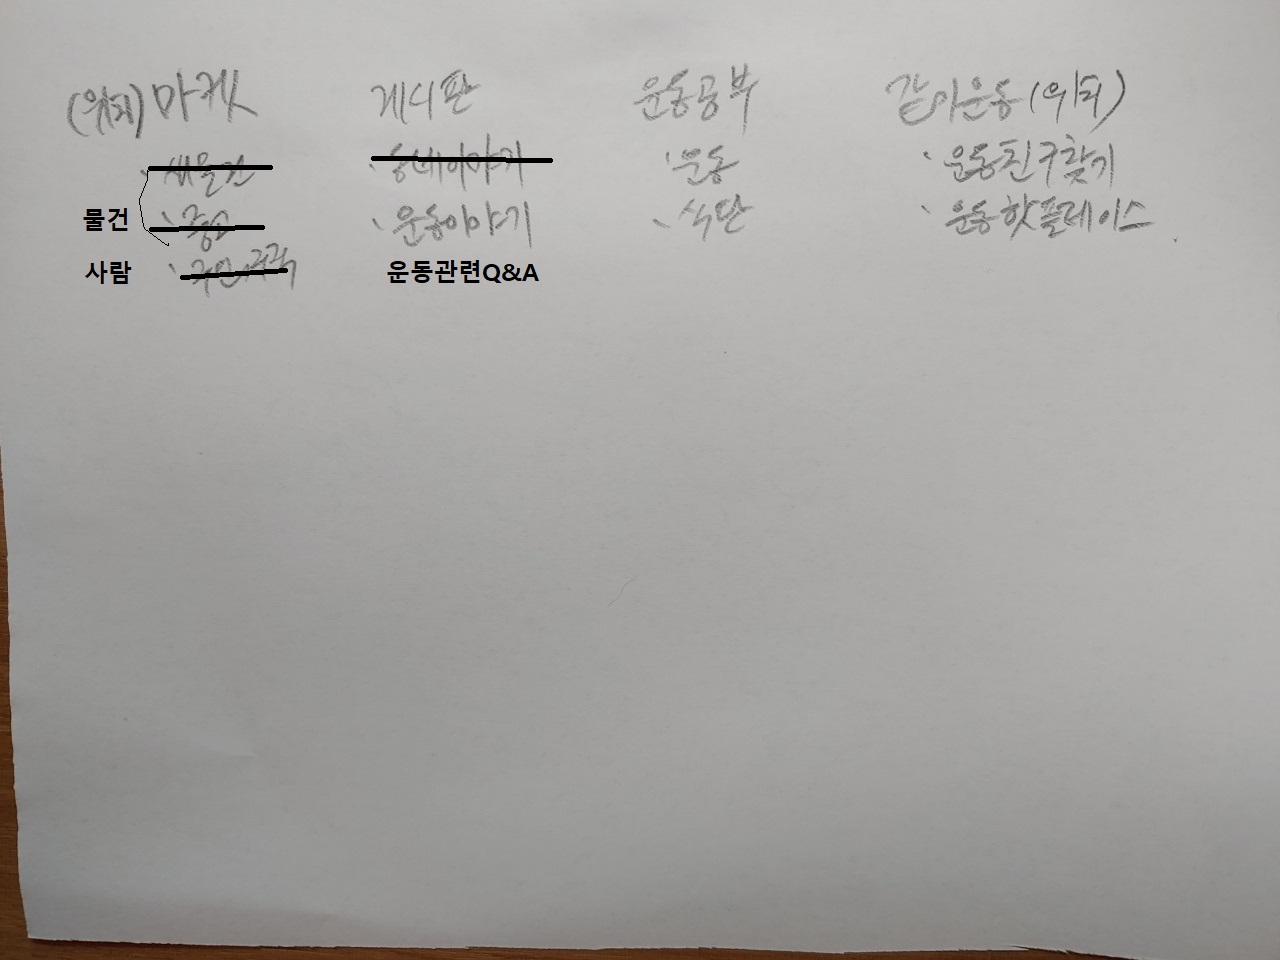 (위치) 마켓
새물건
물건 중고
사람 구인구직
게시판
동네이야기
운동이야기
운동관련Q&A
운동공부
운동
식단
같이운동(위치)
운동친구찾기
운동핫플레이스